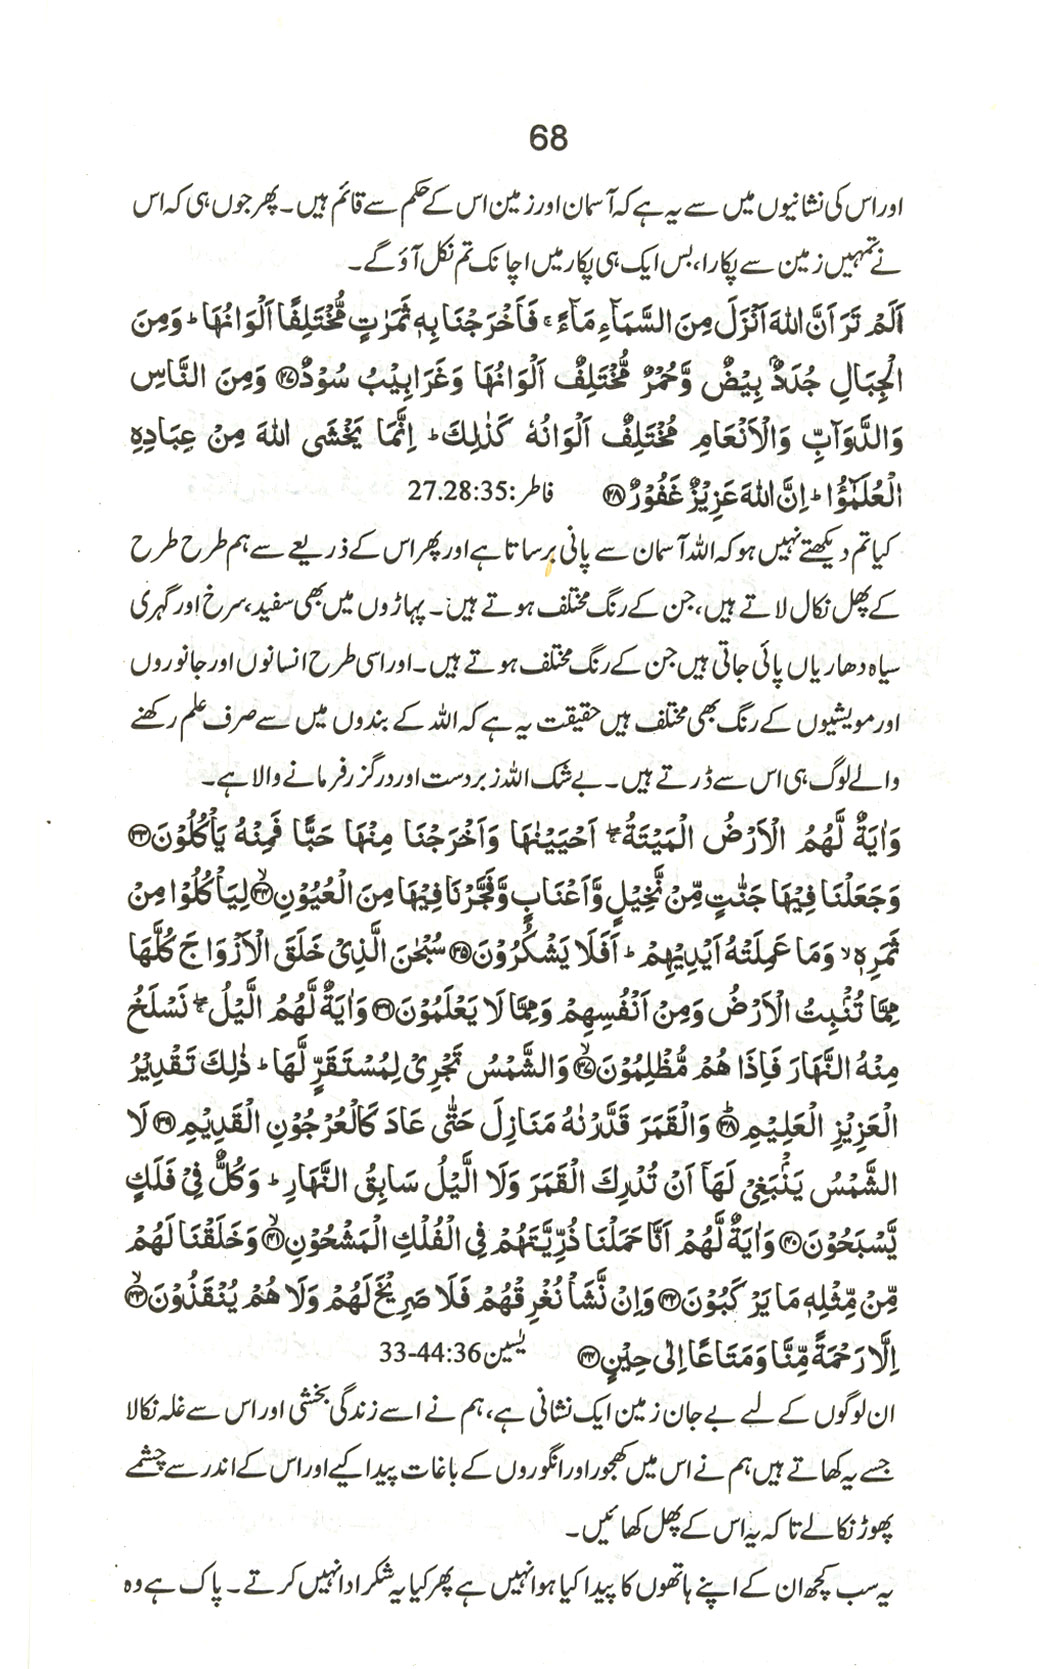 68
اور اس کی نشانیوں میں سے یہ ہے کہ آسمان اور زمین اس کے حکم سے قائم ہیں۔ پھر جوں ہی کہ اس
نے تمہیں زمین سے پکارا، بس ایک ہی پکار میں اچانک تم نکل آؤ گے۔
اَلَمْ تَرَ اَنَّ اللّٰهَ اَنْزَلَ مِنَ السَّمَآءِ مَآءً ۚ فَاَخْرَجْنَا بِهٖ ثَمَرٰتٍ مُّخْتَلِفًا اَلْوَانُهَا ؕ وَمِنَ
الْجِبَالِ جُدَدٌۢ بِيْضٌ وَّحُمْرٌ مُّخْتَلِفٌ اَلْوَانُهَا وَغَرَابِيْبُ سُوْدٌ ﴿۲۷﴾ وَمِنَ النَّاسِ
وَالدَّوَآبِّ وَالْاَنْعَامِ مُخْتَلِفٌ اَلْوَانُهٗ كَذٰلِكَ ؕ اِنَّمَا يَخْشَى اللّٰهَ مِنْ عِبَادِهِ
الْعُلَمٰٓؤُا ؕ اِنَّ اللّٰهَ عَزِيْزٌ غَفُوْرٌ ﴿۲۸﴾ فاطر:27.28:35
کیا تم دیکھتے نہیں ہو کہ اللہ آسمان سے پانی برساتا ہے اور پھر اس کے ذریعے سے ہم طرح طرح
کے پھل نکال لاتے ہیں، جن کے رنگ مختلف ہوتے ہیں۔ پہاڑوں میں بھی سفید، سرخ اور گہری
سیاہ دھاریاں پائی جاتی ہیں جن کے رنگ مختلف ہوتے ہیں۔ اور اسی طرح انسانوں اور جانوروں
اور مویشیوں کے رنگ بھی مختلف ہیں حقیقت یہ ہے کہ اللہ کے بندوں میں سے صرف علم رکھنے
والے لوگ ہی اس سے ڈرتے ہیں۔ بے شک اللہ زبردست اور درگزر فرمانے والا ہے۔
وَاٰيَةٌ لَّهُمُ الْاَرْضُ الْمَيْتَةُ ۖۚ اَحْيَيْنٰهَا وَاَخْرَجْنَا مِنْهَا حَبًّا فَمِنْهُ يَاْكُلُوْنَ ﴿۳۳﴾
وَجَعَلْنَا فِيْهَا جَنّٰتٍ مِّنْ نَّخِيْلٍ وَّاَعْنَابٍ وَّفَجَّرْنَا فِيْهَا مِنَ الْعُيُوْنِ ﴿۳۴﴾ۙ لِيَاْكُلُوْا مِنْ
ثَمَرِهٖ ۙ وَمَا عَمِلَتْهُ اَيْدِيْهِمْ ؕ اَفَلَا يَشْكُرُوْنَ ﴿۳۵﴾ سُبْحٰنَ الَّذِيْ خَلَقَ الْاَزْوَاجَ كُلَّهَا
مِمَّا تُنْۢبِتُ الْاَرْضُ وَمِنْ اَنْفُسِهِمْ وَمِمَّا لَا يَعْلَمُوْنَ ﴿۳۶﴾ وَاٰيَةٌ لَّهُمُ الَّيْلُ ۖۚ نَسْلَخُ
مِنْهُ النَّهَارَ فَاِذَا هُمْ مُّظْلِمُوْنَ ﴿۳۷﴾ۙ وَالشَّمْسُ تَجْرِيْ لِمُسْتَقَرٍّ لَّهَا ؕ ذٰلِكَ تَقْدِيْرُ
الْعَزِيْزِ الْعَلِيْمِ ﴿۳۸﴾ؕ وَالْقَمَرَ قَدَّرْنٰهُ مَنَازِلَ حَتّٰى عَادَ كَالْعُرْجُوْنِ الْقَدِيْمِ ﴿۳۹﴾ لَا
الشَّمْسُ يَنْۢبَغِيْ لَهَآ اَنْ تُدْرِكَ الْقَمَرَ وَلَا الَّيْلُ سَابِقُ النَّهَارِ ؕ وَكُلٌّ فِيْ فَلَكٍ
يَّسْبَحُوْنَ ﴿۴۰﴾ وَاٰيَةٌ لَّهُمْ اَنَّا حَمَلْنَا ذُرِّيَّتَهُمْ فِي الْفُلْكِ الْمَشْحُوْنِ ﴿۴۱﴾ۙ وَخَلَقْنَا لَهُمْ
مِّنْ مِّثْلِهٖ مَا يَرْكَبُوْنَ ﴿۴۲﴾ وَاِنْ نَّشَاْ نُغْرِقْهُمْ فَلَا صَرِيْخَ لَهُمْ وَلَا هُمْ يُنْقَذُوْنَ ﴿۴۳﴾ۙ
اِلَّا رَحْمَةً مِّنَّا وَمَتَاعًا اِلٰى حِيْنٍ ﴿۴۴﴾ یٰسین 33-44:36
ان لوگوں کے لیے بے جان زمین ایک نشانی ہے، ہم نے اسے زندگی بخشی اور اس سے غلہ نکالا
جسے یہ کھاتے ہیں ہم نے اس میں کھجور اور انگوروں کے باغات پیدا کیے اور اس کے اندر سے چشمے
پھوڑ نکالے تا کہ یہ اس کے پھل کھائیں۔
یہ سب کچھ ان کے اپنے ہاتھوں کا پیدا کیا ہوا نہیں ہے پھر کیا یہ شکر ادا نہیں کرتے۔ پاک ہے وہ